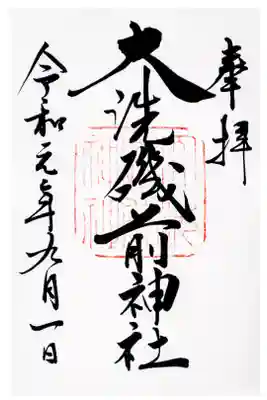 奉拝
大洗磯前神社
令和元年九月一日